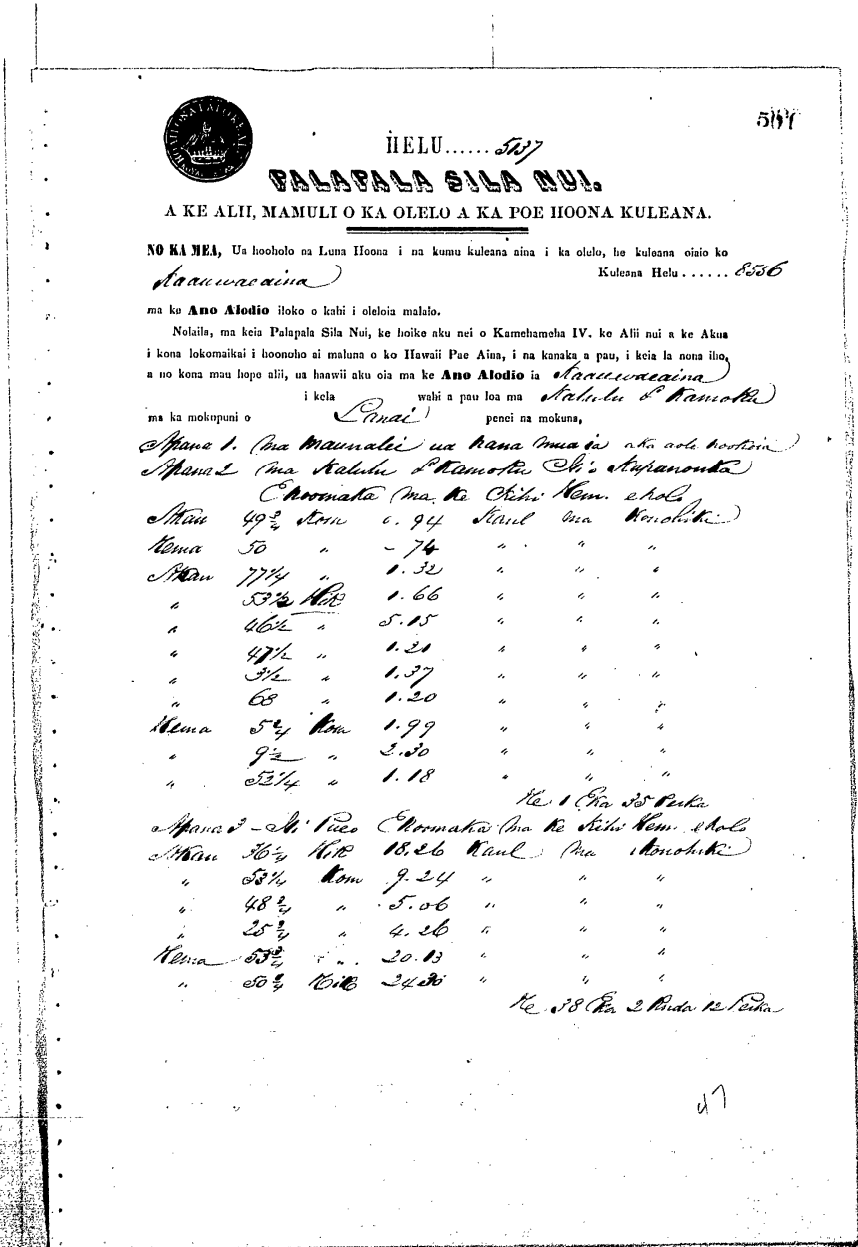 HELU...... 5137
PALAPALA SILA NUI.
A KE ALII, MAMULI O KA OLELO A KA POE HOONA KULEANA.
NO KA MEA, Ua hooholo na Luna Hoona i na kumu kuleana aina i ka olelo, he kuleana oiaio ko
Kaauwaeaina Kuleana Helu...... 8556
ma ke Ano Alodio iloko o kahi i oleloia malalo.
Nolaila, ma keia Palapala Sila Nui, ke hoike aku nei o Kamehameha IV. ke Alii nui a ke Akua
i kona lokomaikai i hoonoho ai maluna o ko Hawaii Pae Aina, i na kanaka a pau, i keia la nona iho,
a no kona mau hope alii, ua haawii aku oia ma ke Ano Alodio ia Kaauwaeaina
i kela wahi a pau loa ma Kalulu & Kamoku
ma ka mokupuni o Lanai penei na mokuna,
Apana 1. ma Maunalei ua hana mua ia aka aole hookoia
Apana 2 ma Kalulu & Kamoku Ili o
E hoomaka ma ke Kihi Hem. e holo
Akau 49 3/4 Kom 0.94 Kaul ma Konohiki
Hema 50 " - 74 " " "
Akau 77 1/4 " 1.32 " " "
" 53 1/2 Hik 1.66 " " "
" 46 1/2 " 5.15 " " "
" 47 1/2 " 1.21 " " "
" 3 1/2 " 1.37 " " "
" 68 1.20 " "
Hema 5 3/4 Kom 1.99 " " "
" 9 1/2 " 2.30 " " "
" 53 1/4 " 1.18 " " "
He 1 Eka 35 Perka
Apana 3 - Ili Pueo E hoomaka ma ke Kihi Hem. e holo
Akau 36 1/4 Hik 18.26 Kaul ma Konohiki
" 53 1/4 Kom 9.24 " " "
" 48 3/4 " 5.06 " " "
" 25 3/4 " 4.26 " " "
Hema 53 3/4 " 20.13 " " "
" 50 3/4 Hik 24.30 " " "
He 38 Eka 2 Ruda 12 Perka